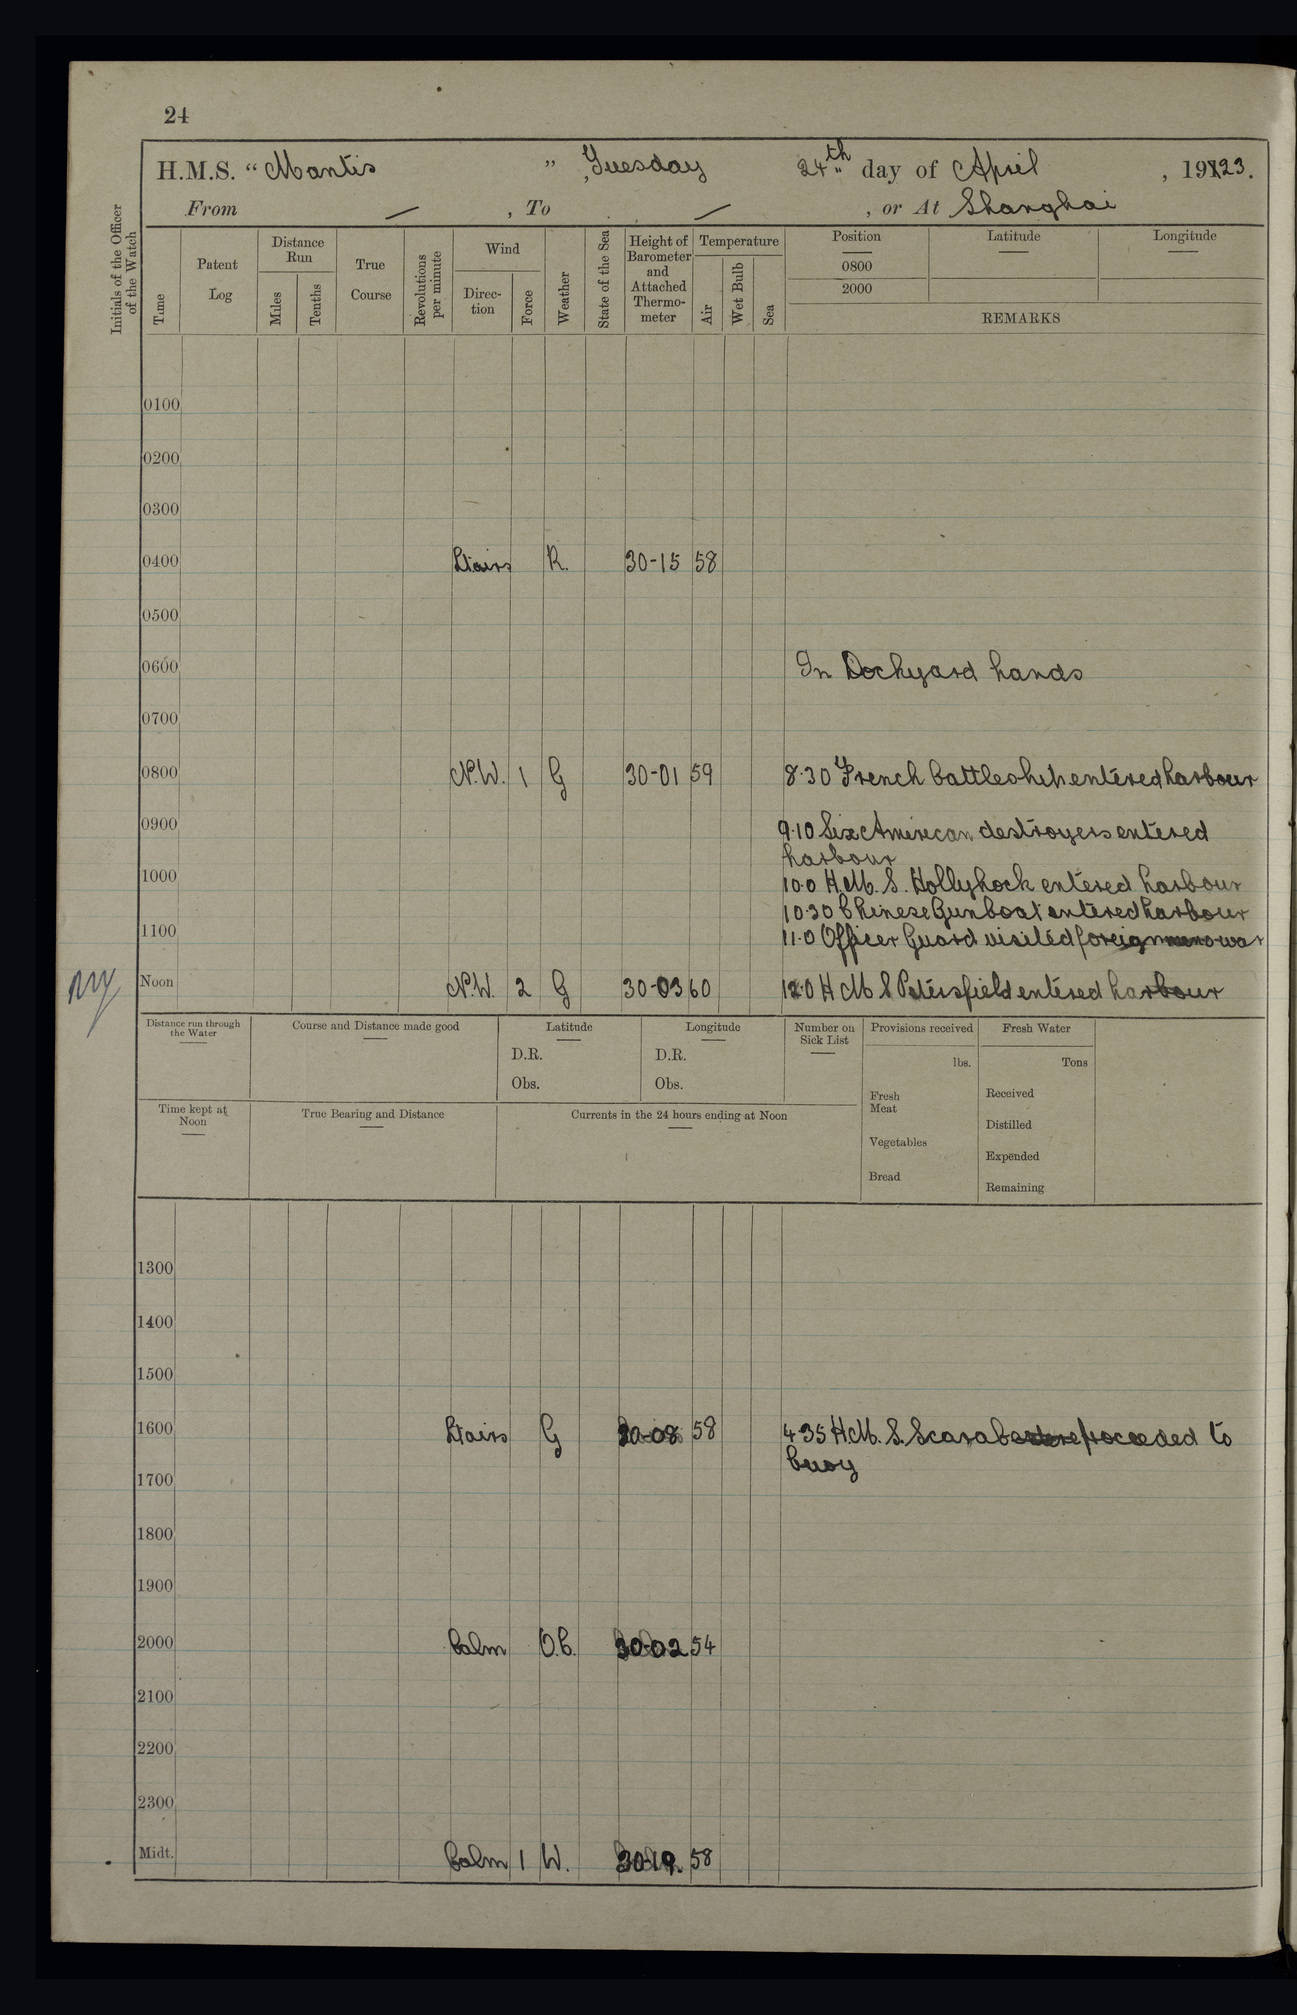 24
H.M.S. “ Mantis ” , Tuesday 24th day of April , 1923.
From / , To / , or At Shanghai
Initials of the Officer of the Watch
Time
Patent Log
Distance Run
Miles
Tenths
True Course
Revolutions per minute
Wind
Direc-tion
Force
Weather
State of the Sea
Height of Barometer and Attached Thermo-meter
Temperature
Air
Wet Bulb
Sea
Position
Latitude
Longitude
0800
2000
REMARKS
0100
0200
0300
0400 Ltairs R. 30-15 58
0500
0600 In Dockyard hands
0700
0800 N.W. 1 G 30-01 59 8.30 French battleship entered harbour
0900 9.10 Six American destroyers entered
harbour
1000 10.0 H.M.S. Hollyhock entered harbour
10.30 Chinese Gunboat entered harbour
1100 11.0 Officer Guard visited foreign meno war
Noon N.W. 2 G 30-03 60 12.0 H M S Petersfield entered harbour
Distance run through the Water
Course and Distance made good
Latitude
D.R.
Obs.
Longitude
D.R.
Obs.
Number on Sick List
Provisions received
lbs.
Fresh Meat
Vegetables
Bread
Fresh Water
Tons
Received
Distilled
Expended
Remaining
Time kept at Noon
True Bearing and Distance
Currents in the 24 hours ending at Noon
1300
1400
1500
1600 Ltairs G 30-08 58 4.35 H.M.S. Scarab proceeded to
buoy
1700
1800
1900
2000 Calm O.C. 30-02 54
2100
2200
2300
Midt. Calm 1 W. 30-19. 58